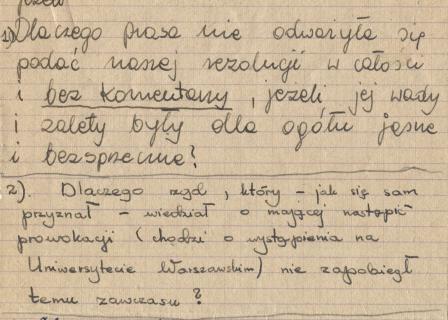 1) Dlaczego prasa nie odważyła się
podać naszej rezolucji w całości
i bez komentarzy, jeżeli jej wady
i zalety były dla ogółu jasne
i bezsporne?
2). Dlaczego rząd, który – jak się sam
przyznał – wiedział o mającej nastąpić
prowokacji (chodzi o wystąpienia na
Uniwersytecie Warszawskim) nie zapobiegł
temu zawczasu?